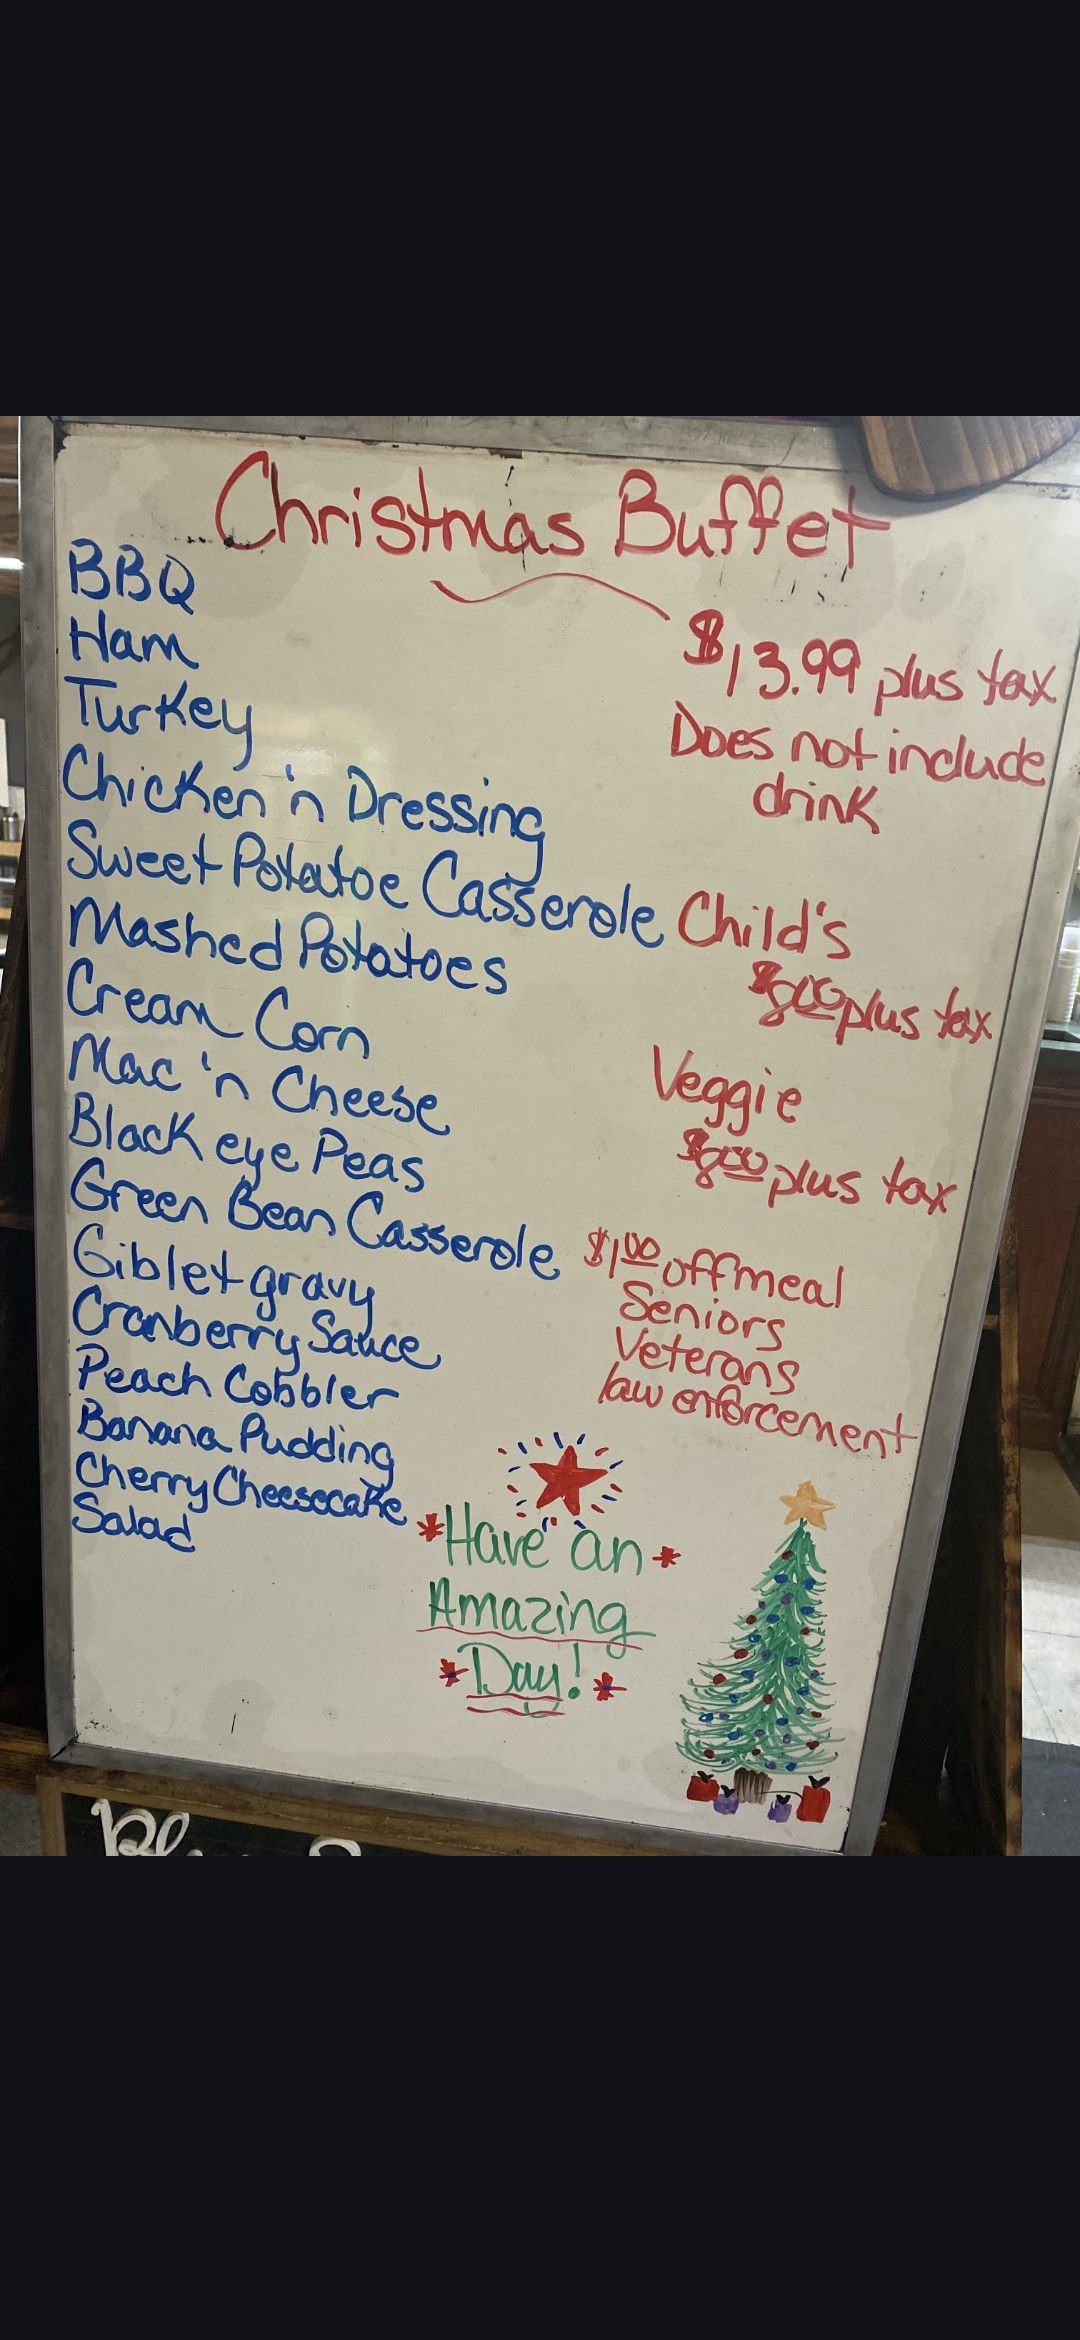 Christmas Buffet
BBQ
Ham
Turkey
Chicken 'n Dressing
Sweet Potatoe Casserole
Mashed Potatoes
Cream Corn
Mac 'n Cheese
Black eye Peas
Green Bean Casserole
Giblet gravy
Cranberry Sauce
Peach Cobbler
Banana Pudding
Cherry Cheesecake
Salad
$13.99 plus tax
Does not include
drink
Child's
$8.00 plus tax
Veggie
$8.00 plus tax
$1.00 off meal
Seniors
Veterans
law enforcement
*Have an*
Amazing
*Day!*